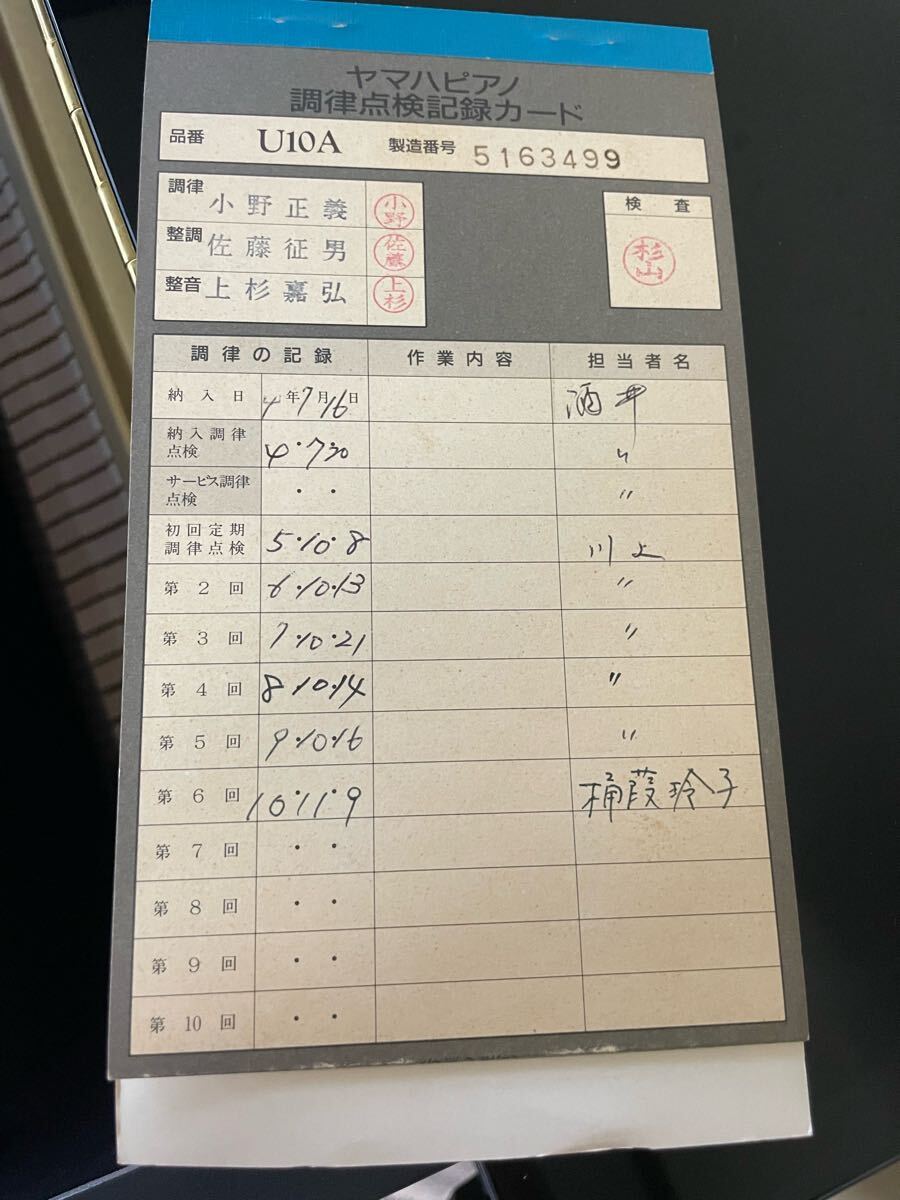 ヤマハピアノ
調律点検記録カード
品番 U10A 製造番号 5163499
調律 小野正義 小野
整調 佐藤征男 佐藤
整音 上杉嘉弘 上杉
検査
杉山
調律の記録 作業内容 担当者名
納入日 4年7月16日 酒井
納入調律点検 4・7・30 〃
サービス調律点検 ・・ 〃
初回定期調律点検 5・10・8 川上
第2回 6・10・13 〃
第3回 7・10・21 〃
第4回 8・10・14 〃
第5回 9・10・16 〃
第6回 10・11・9 玲子
第7回 ・・
第8回 ・・
第9回 ・・
第10回 ・・